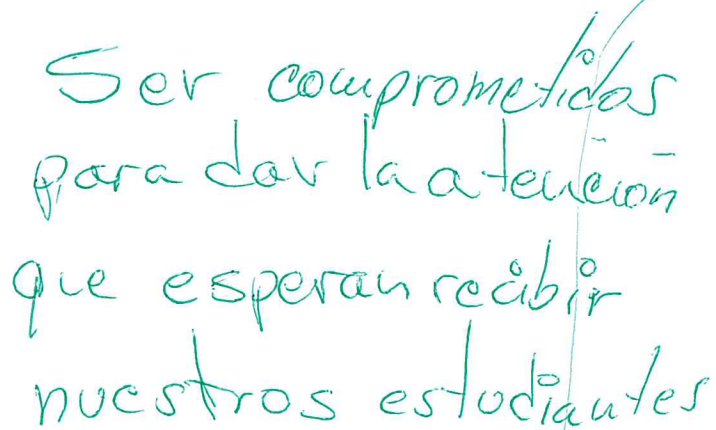 Ser comprometidos
para dar la atención
que esperan recibir
nuestros estudiantes